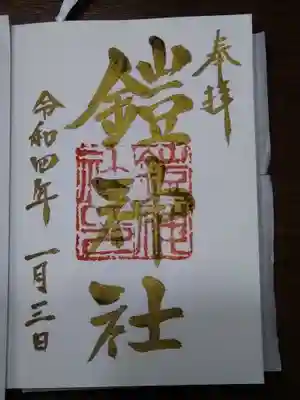 奉拝
鎧神社
令和四年 一月三日